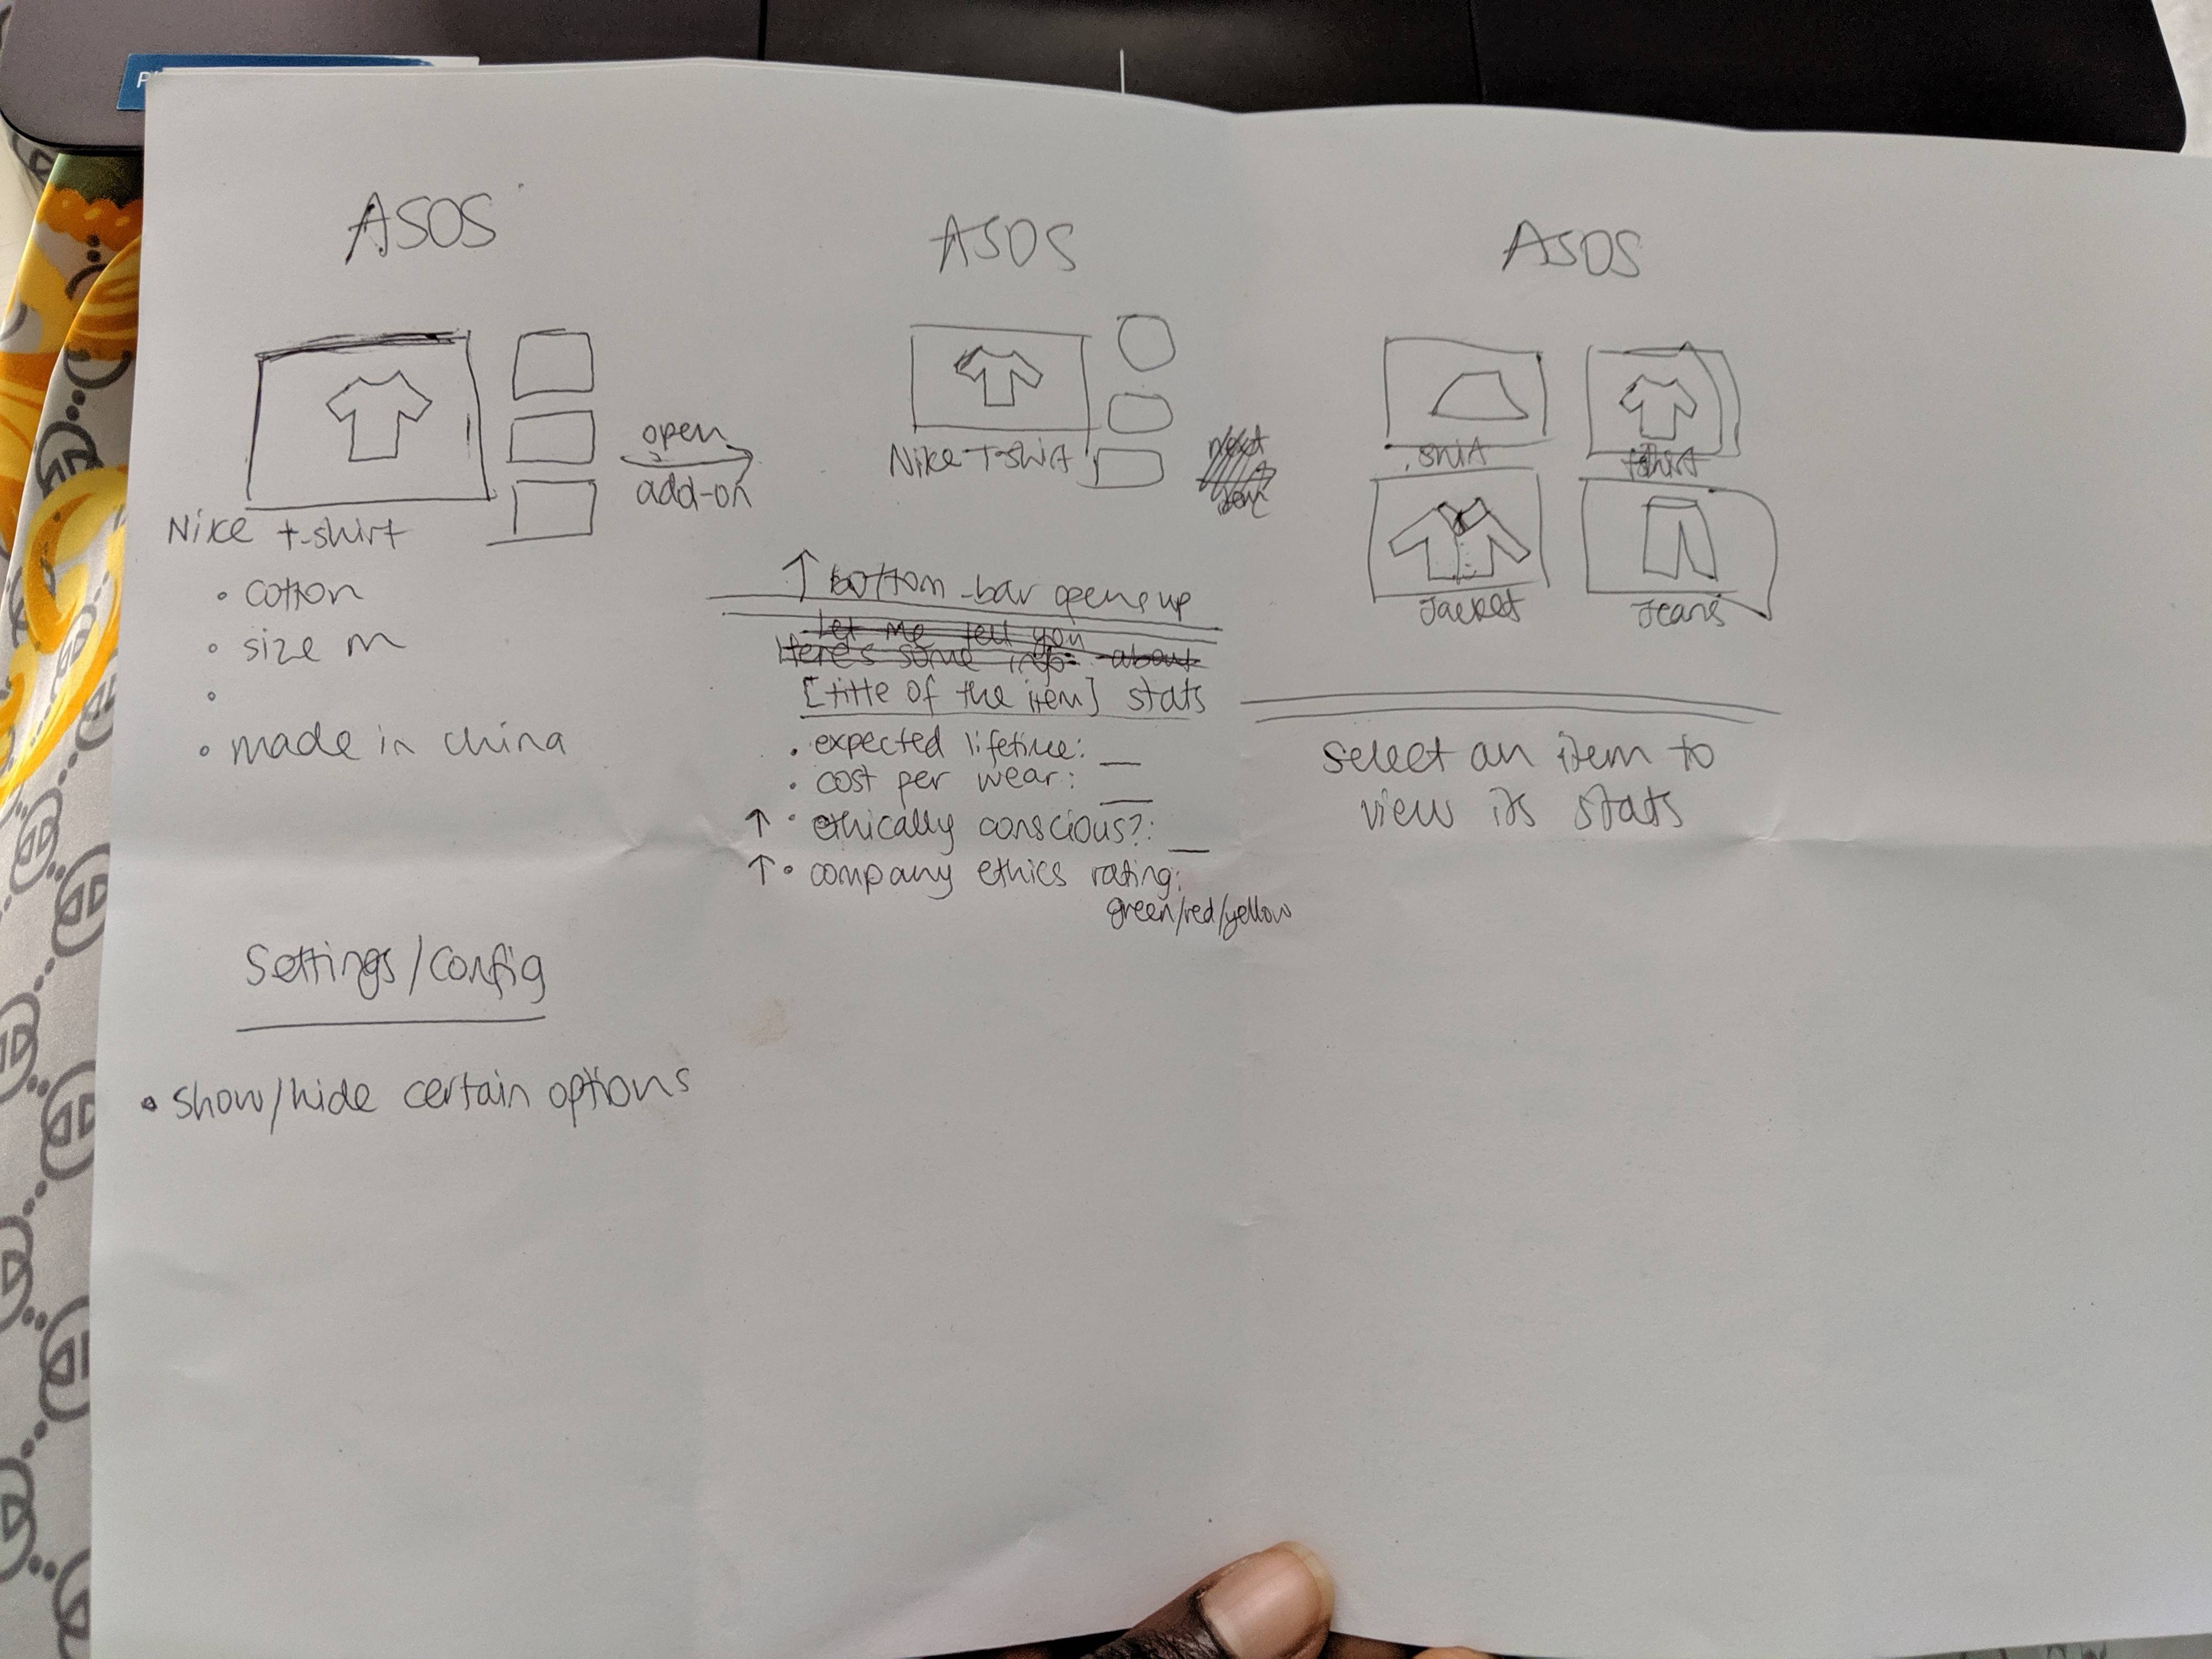 ASOS
Nike t-shirt
• cotton
• size m
•
• made in china
open
add-on
ASOS
Nike T-shirt
↑ bottom-bar opens up
Let me tell you
Here's some info: about
[title of the item] stats
• expected lifetime: __
• cost per wear: __
↑ • ethically conscious?: __
↑ • company ethics rating:
green/red/yellow
ASOS
tshirt
Jacket
Jeans
select an item to
view its stats
Settings/Config
• show/hide certain options